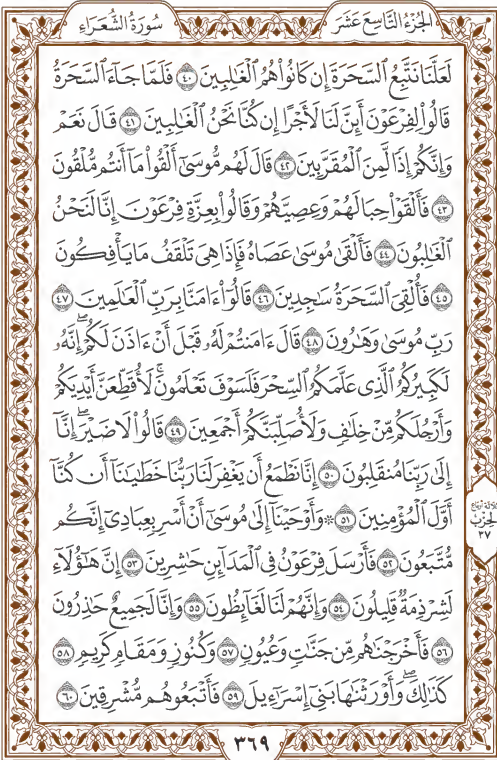 سُورَةُ الشُّعَرَاءِ الجُزْءُ التَّاسِعَ عَشَرَ
لَعَلَّنَا نَتَّبِعُ ٱلسَّحَرَةَ إِن كَانُوا۟ هُمُ ٱلْغَٰلِبِينَ ٤٠ فَلَمَّا جَآءَ ٱلسَّحَرَةُ
قَالُوا۟ لِفِرْعَوْنَ أَئِنَّ لَنَا لَأَجْرًا إِن كُنَّا نَحْنُ ٱلْغَٰلِبِينَ ٤١ قَالَ نَعَمْ
وَإِنَّكُمْ إِذًا لَّمِنَ ٱلْمُقَرَّبِينَ ٤٢ قَالَ لَهُم مُّوسَىٰٓ أَلْقُوا۟ مَآ أَنتُم مُّلْقُونَ
٤٣ فَأَلْقَوْا۟ حِبَالَهُمْ وَعِصِيَّهُمْ وَقَالُوا۟ بِعِزَّةِ فِرْعَوْنَ إِنَّا لَنَحْنُ
ٱلْغَٰلِبُونَ ٤٤ فَأَلْقَىٰ مُوسَىٰ عَصَاهُ فَإِذَا هِىَ تَلْقَفُ مَا يَأْفِكُونَ
٤٥ فَأُلْقِىَ ٱلسَّحَرَةُ سَٰجِدِينَ ٤٦ قَالُوٓا۟ ءَامَنَّا بِرَبِّ ٱلْعَٰلَمِينَ ٤٧
رَبِّ مُوسَىٰ وَهَٰرُونَ ٤٨ قَالَ ءَامَنتُمْ لَهُۥ قَبْلَ أَنْ ءَاذَنَ لَكُمْ ۖ إِنَّهُۥ
لَكَبِيرُكُمُ ٱلَّذِى عَلَّمَكُمُ ٱلسِّحْرَ فَلَسَوْفَ تَعْلَمُونَ ۚ لَأُقَطِّعَنَّ أَيْدِيَكُمْ
وَأَرْجُلَكُم مِّنْ خِلَٰفٍ وَلَأُصَلِّبَنَّكُمْ أَجْمَعِينَ ٤٩ قَالُوا۟ لَا ضَيْرَ ۖ إِنَّآ
إِلَىٰ رَبِّنَا مُنقَلِبُونَ ٥٠ إِنَّا نَطْمَعُ أَن يَغْفِرَ لَنَا رَبُّنَا خَطَٰيَٰنَآ أَن كُنَّآ
أَوَّلَ ٱلْمُؤْمِنِينَ ٥١ ۞ وَأَوْحَيْنَآ إِلَىٰ مُوسَىٰٓ أَنْ أَسْرِ بِعِبَادِىٓ إِنَّكُم
مُّتَّبَعُونَ ٥٢ فَأَرْسَلَ فِرْعَوْنُ فِى ٱلْمَدَآئِنِ حَٰشِرِينَ ٥٣ إِنَّ هَٰٓؤُلَآءِ
لَشِرْذِمَةٌ قَلِيلُونَ ٥٤ وَإِنَّهُمْ لَنَا لَغَآئِظُونَ ٥٥ وَإِنَّا لَجَمِيعٌ حَٰذِرُونَ
٥٦ فَأَخْرَجْنَٰهُم مِّن جَنَّٰتٍ وَعُيُونٍ ٥٧ وَكُنُوزٍ وَمَقَامٍ كَرِيمٍ ٥٨
كَذَٰلِكَ ۖ وَأَوْرَثْنَٰهَا بَنِىٓ إِسْرَٰٓءِيلَ ٥٩ فَأَتْبَعُوهُم مُّشْرِقِينَ ٦٠
ثلاثة أرباع
الحِزْب
٣٧
٣٦٩